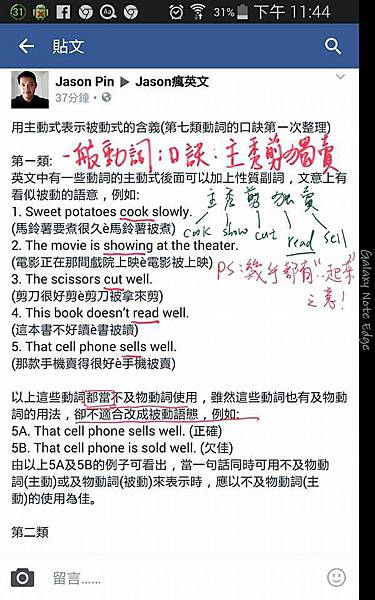 31%
下午 11:44
貼文
Jason Pin ▶ Jason瘋英文
37分鐘 ·
用主動式表示被動式的含義(第七類動詞的口訣第一次整理)
第一類: 一般動詞:口訣:主秀剪獨賣
英文中有一些動詞的主動式後面可以加上性質副詞,文意上有
看似被動的語意,例如:
主秀剪獨賣
1. Sweet potatoes cook slowly.
cook show cut read sell
(馬鈴薯要煮很久è馬鈴薯被煮)
2. The movie is showing at the theater.
(電影正在那間戲院上映è電影被上映)
PS:幾乎都有"起來"
之意!
3. The scissors cut well.
(剪刀很好剪è剪刀被拿來剪)
4. This book doesn't read well.
(這本書不好讀è書被讀)
5. That cell phone sells well.
(那款手機賣得很好è手機被賣)
以上這些動詞都當不及物動詞使用,雖然這些動詞也有及物動
詞的用法,卻不適合改成被動語態,例如:
5A. That cell phone sells well. (正確)
5B. That cell phone is sold well. (欠佳)
由以上5A及5B的例子可看出,當一句話同時可用不及物動
詞(主動)或及物動詞(被動)來表示時,應以不及物動詞(主
動)的使用為佳。
第二類
留言......
Galaxy Note Edge